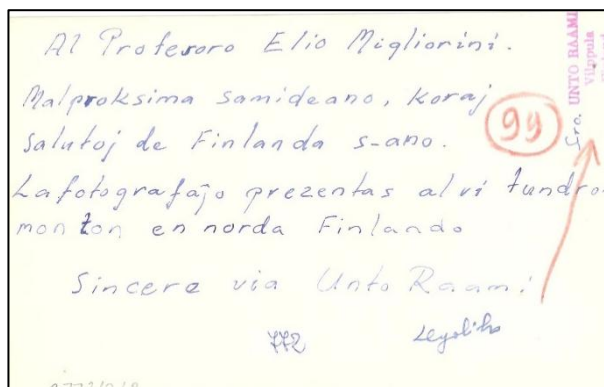 Al Profesoro Elio Migliorini.
Malproksima samideano, koraj
salutoj de Finlanda s-ano.
La fotografaĵo prezentas al vi tundro-
monton en norda Finlando
Sincere via Unto Raami
99
UNTO RAAMI
Vilppula
772